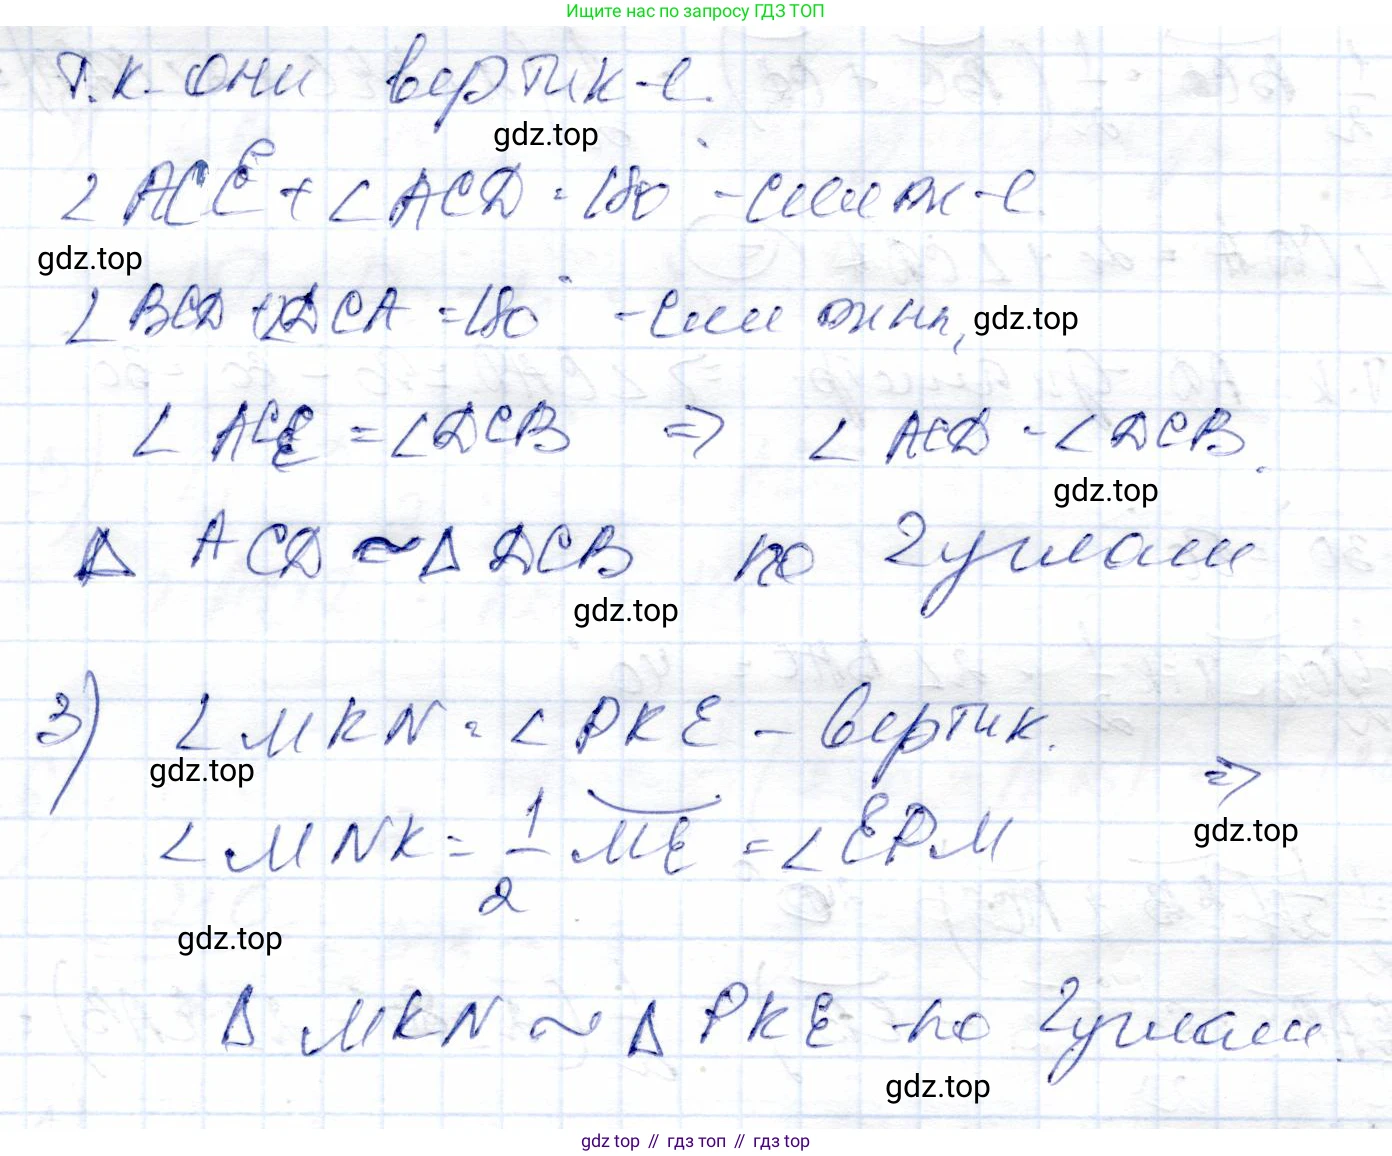 Ищите нас по запросу ГДЗ ТОП
т.к. они вертик-е.
gdz.top
∠ACE + ∠ACD = 180° - смеж-е.
gdz.top
∠BCD + ∠DCA = 180° - смежны,
gdz.top
∠ACE = ∠DCB ⇒ ∠ACD = ∠DCB.
gdz.top
Δ ACD ~ Δ DCB по 2 углам
gdz.top
3) ∠MKN = ∠PKE - вертик.
gdz.top
⇒
∠MNK = 1/2 ME = ∠EPM
gdz.top
gdz.top
Δ MKN ~ Δ PKE - по 2 углам.
gdz.top
gdz top // гдз топ // гдз top